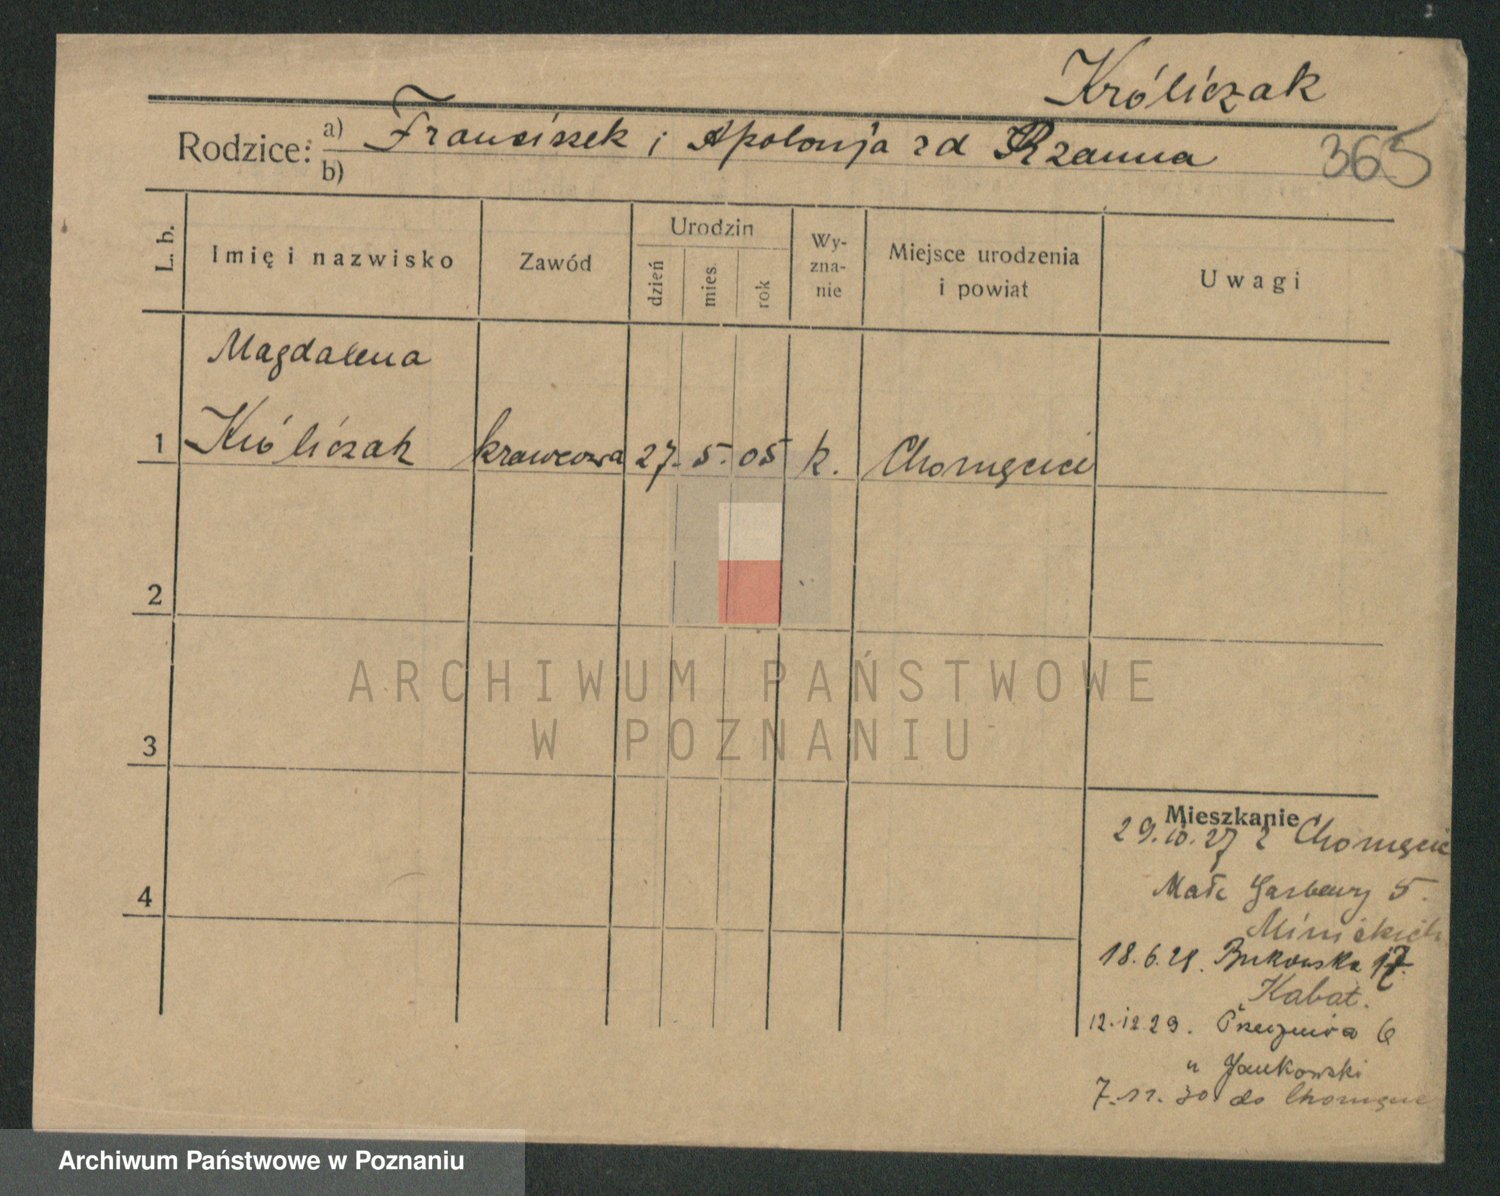 Króliczak
Rodzice: a) Franciszek i Apolonja zd Rzanna 365
b)
L. b. Imię i nazwisko Zawód Urodzin dzień mies. rok Wyzna-nie Miejsce urodzenia i powiat Uwagi
Magdalena
1 Króliczak krawcowa 27. 5. 05 k. Chomęcice
2
3
4
ARCHIWUM PAŃSTWOWE
W POZNANIU
Mieszkanie
29.10.27 z Chomęcic
Małe Garbary 5.
18.6.28. Bukowska 17.
Kabat.
12.12.29. 6
u Jankowski
7.11.30 do Chomęcic
Archiwum Państwowe w Poznaniu